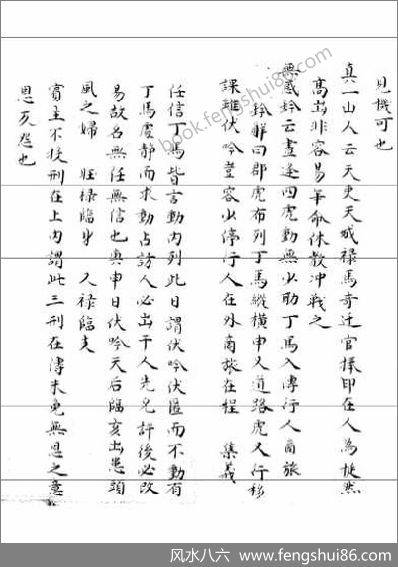 見機可也
真一山人云天吏天城祿馬奇迁官捧印在人為挺然
高出非容易年命休教冲戰之
無惑終云晝逢四虎動無少肋丁馬入傳行人商旅
鈐解曰郡虎布列丁馬縱橫申又道路虎又行移
課雖伏吟豈容少停行人在外商旅在程 集義
任信丁馬皆言動內列此日謂伏吟伏匿而不動有
丁馬虛靜而求動占訪人必出干人先允許後必改
易故名無任無信也與申日伏吟天后臨亥出患頭
風之婦 旺祿臨身 又祿臨支
賓主不投刑在上內謂此三刑在傳未免無恩之意
恩反怨也
book.fengshui86.com
风水八六 www.fengshui86.com